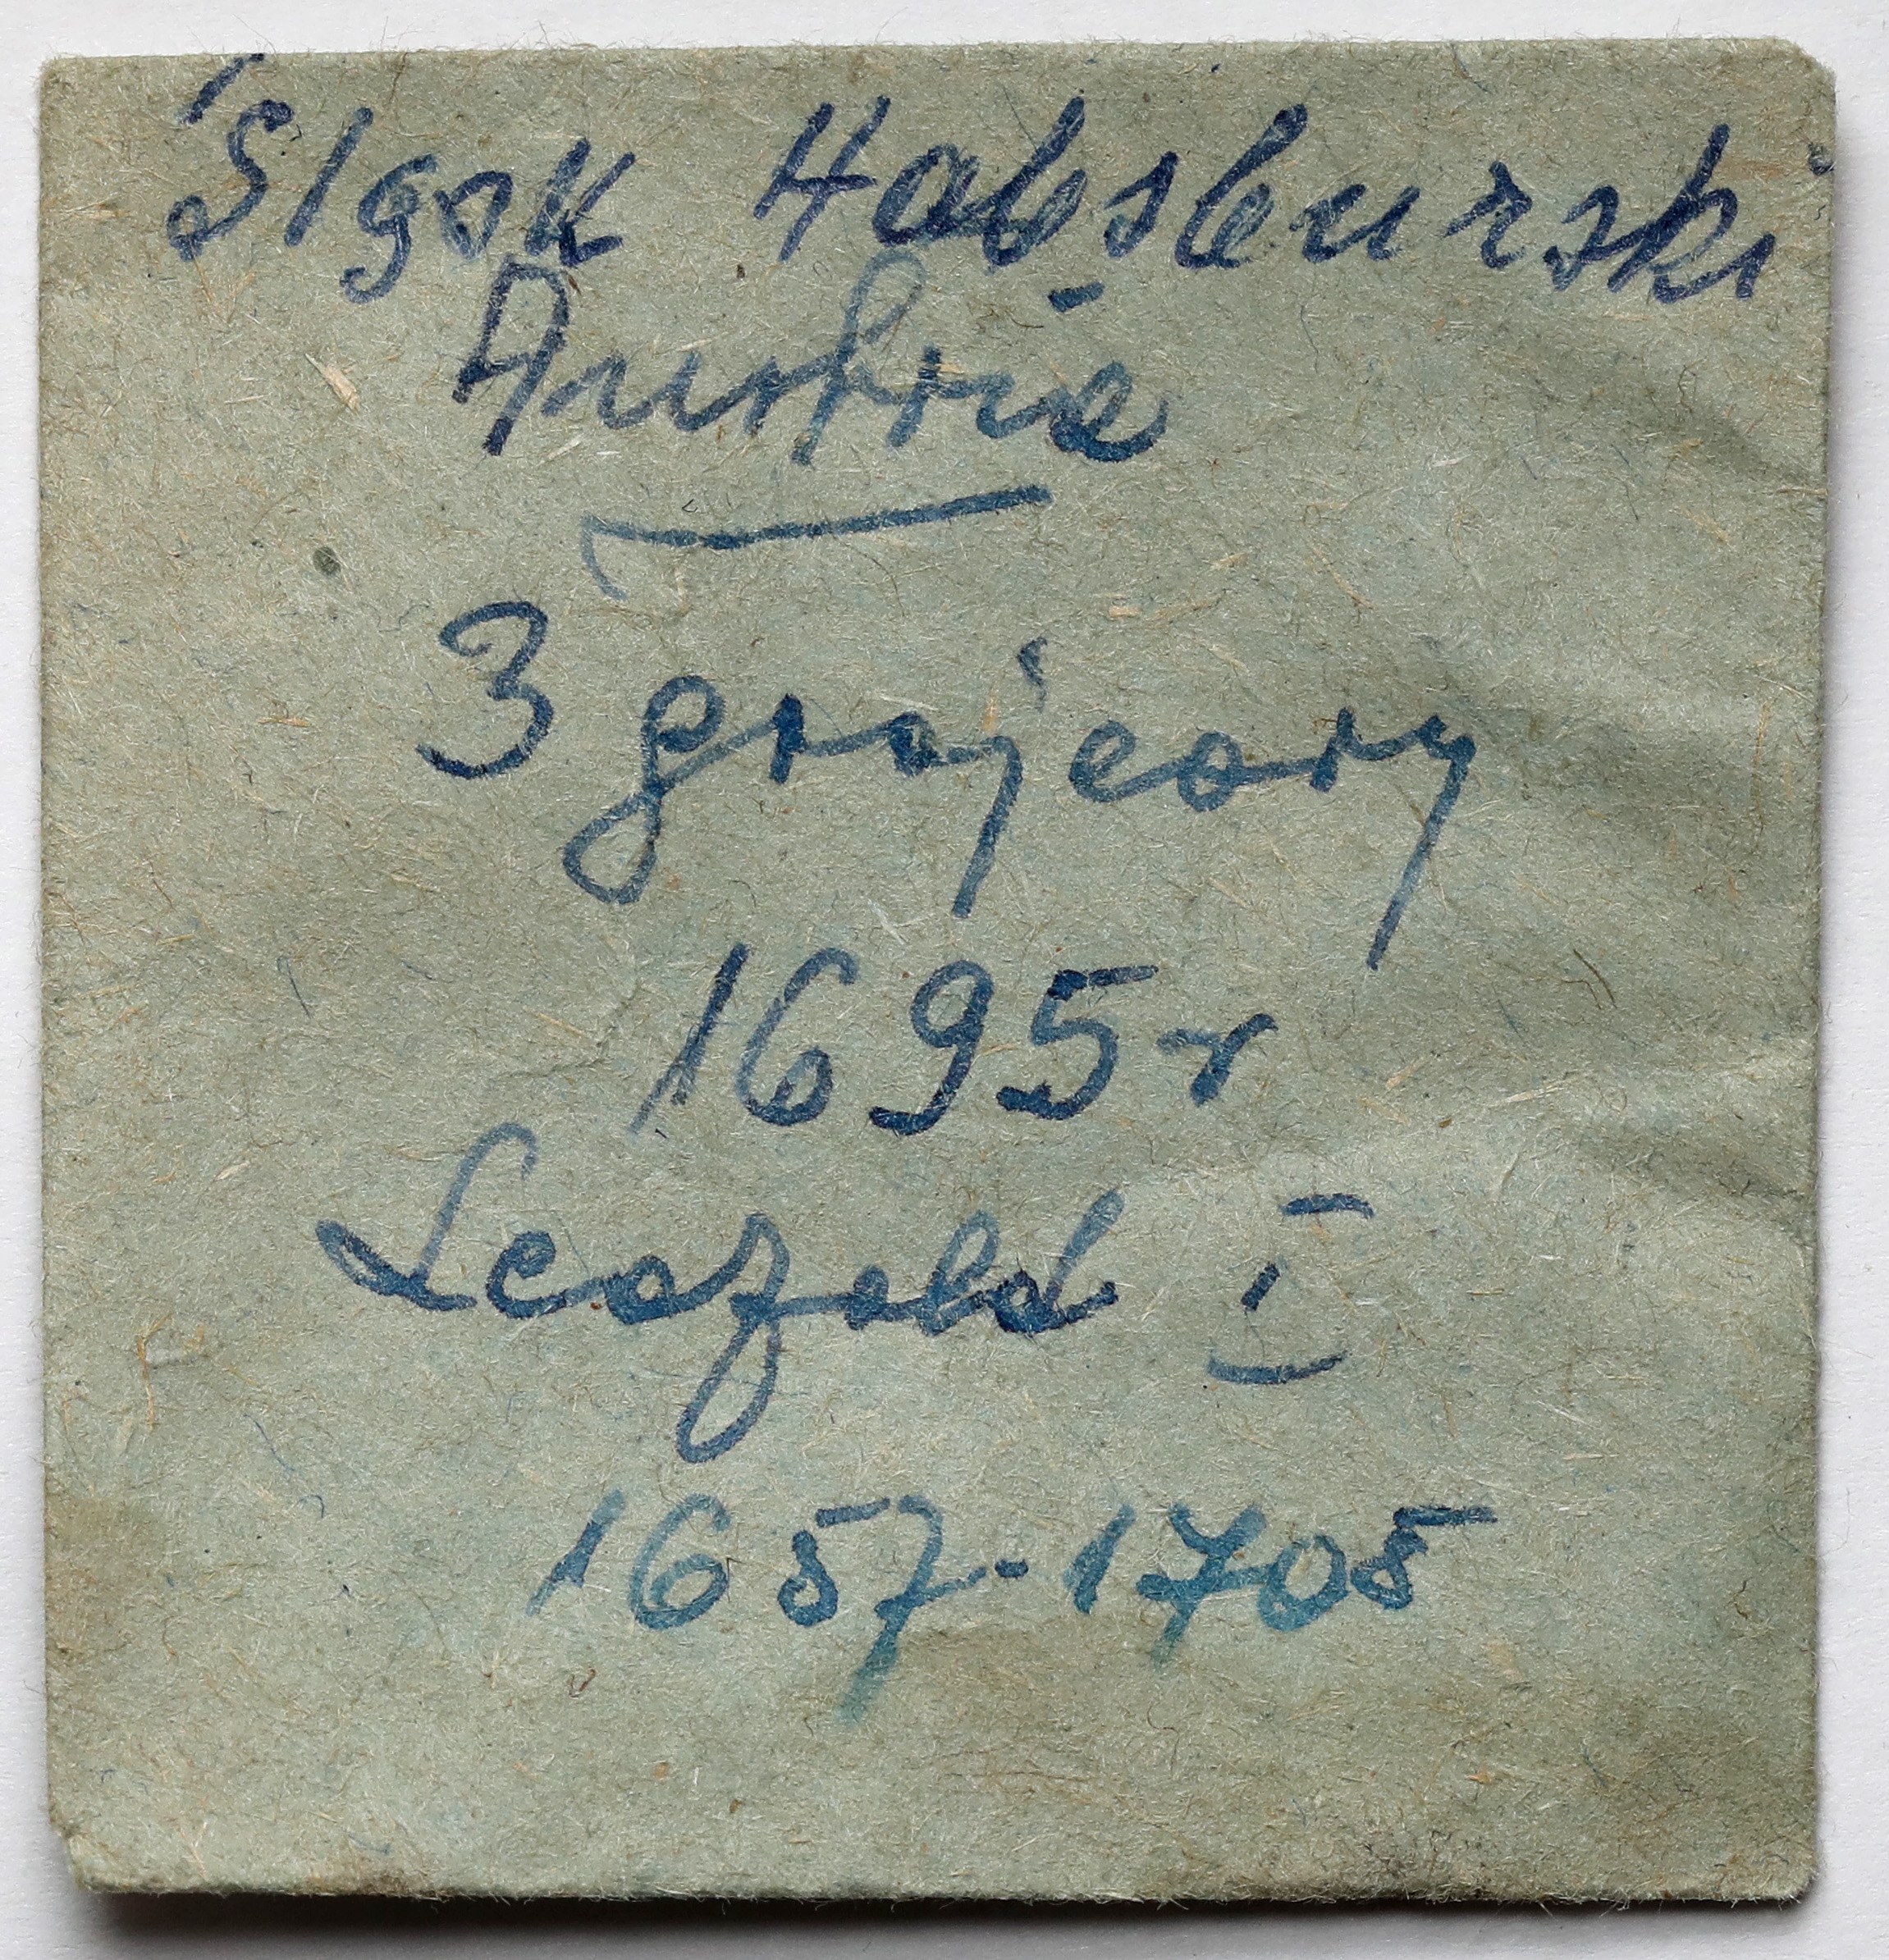 Śląsk Habsburski
Austria
3 grajcary
1695 r
Leopold I
1657-1705